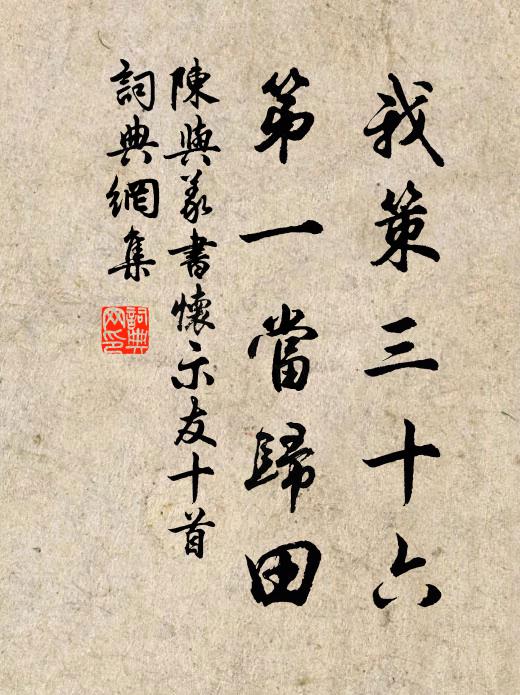 我策三十六
第一當歸田
陳與義書懷示友十首
詞典網集
詞典
网印